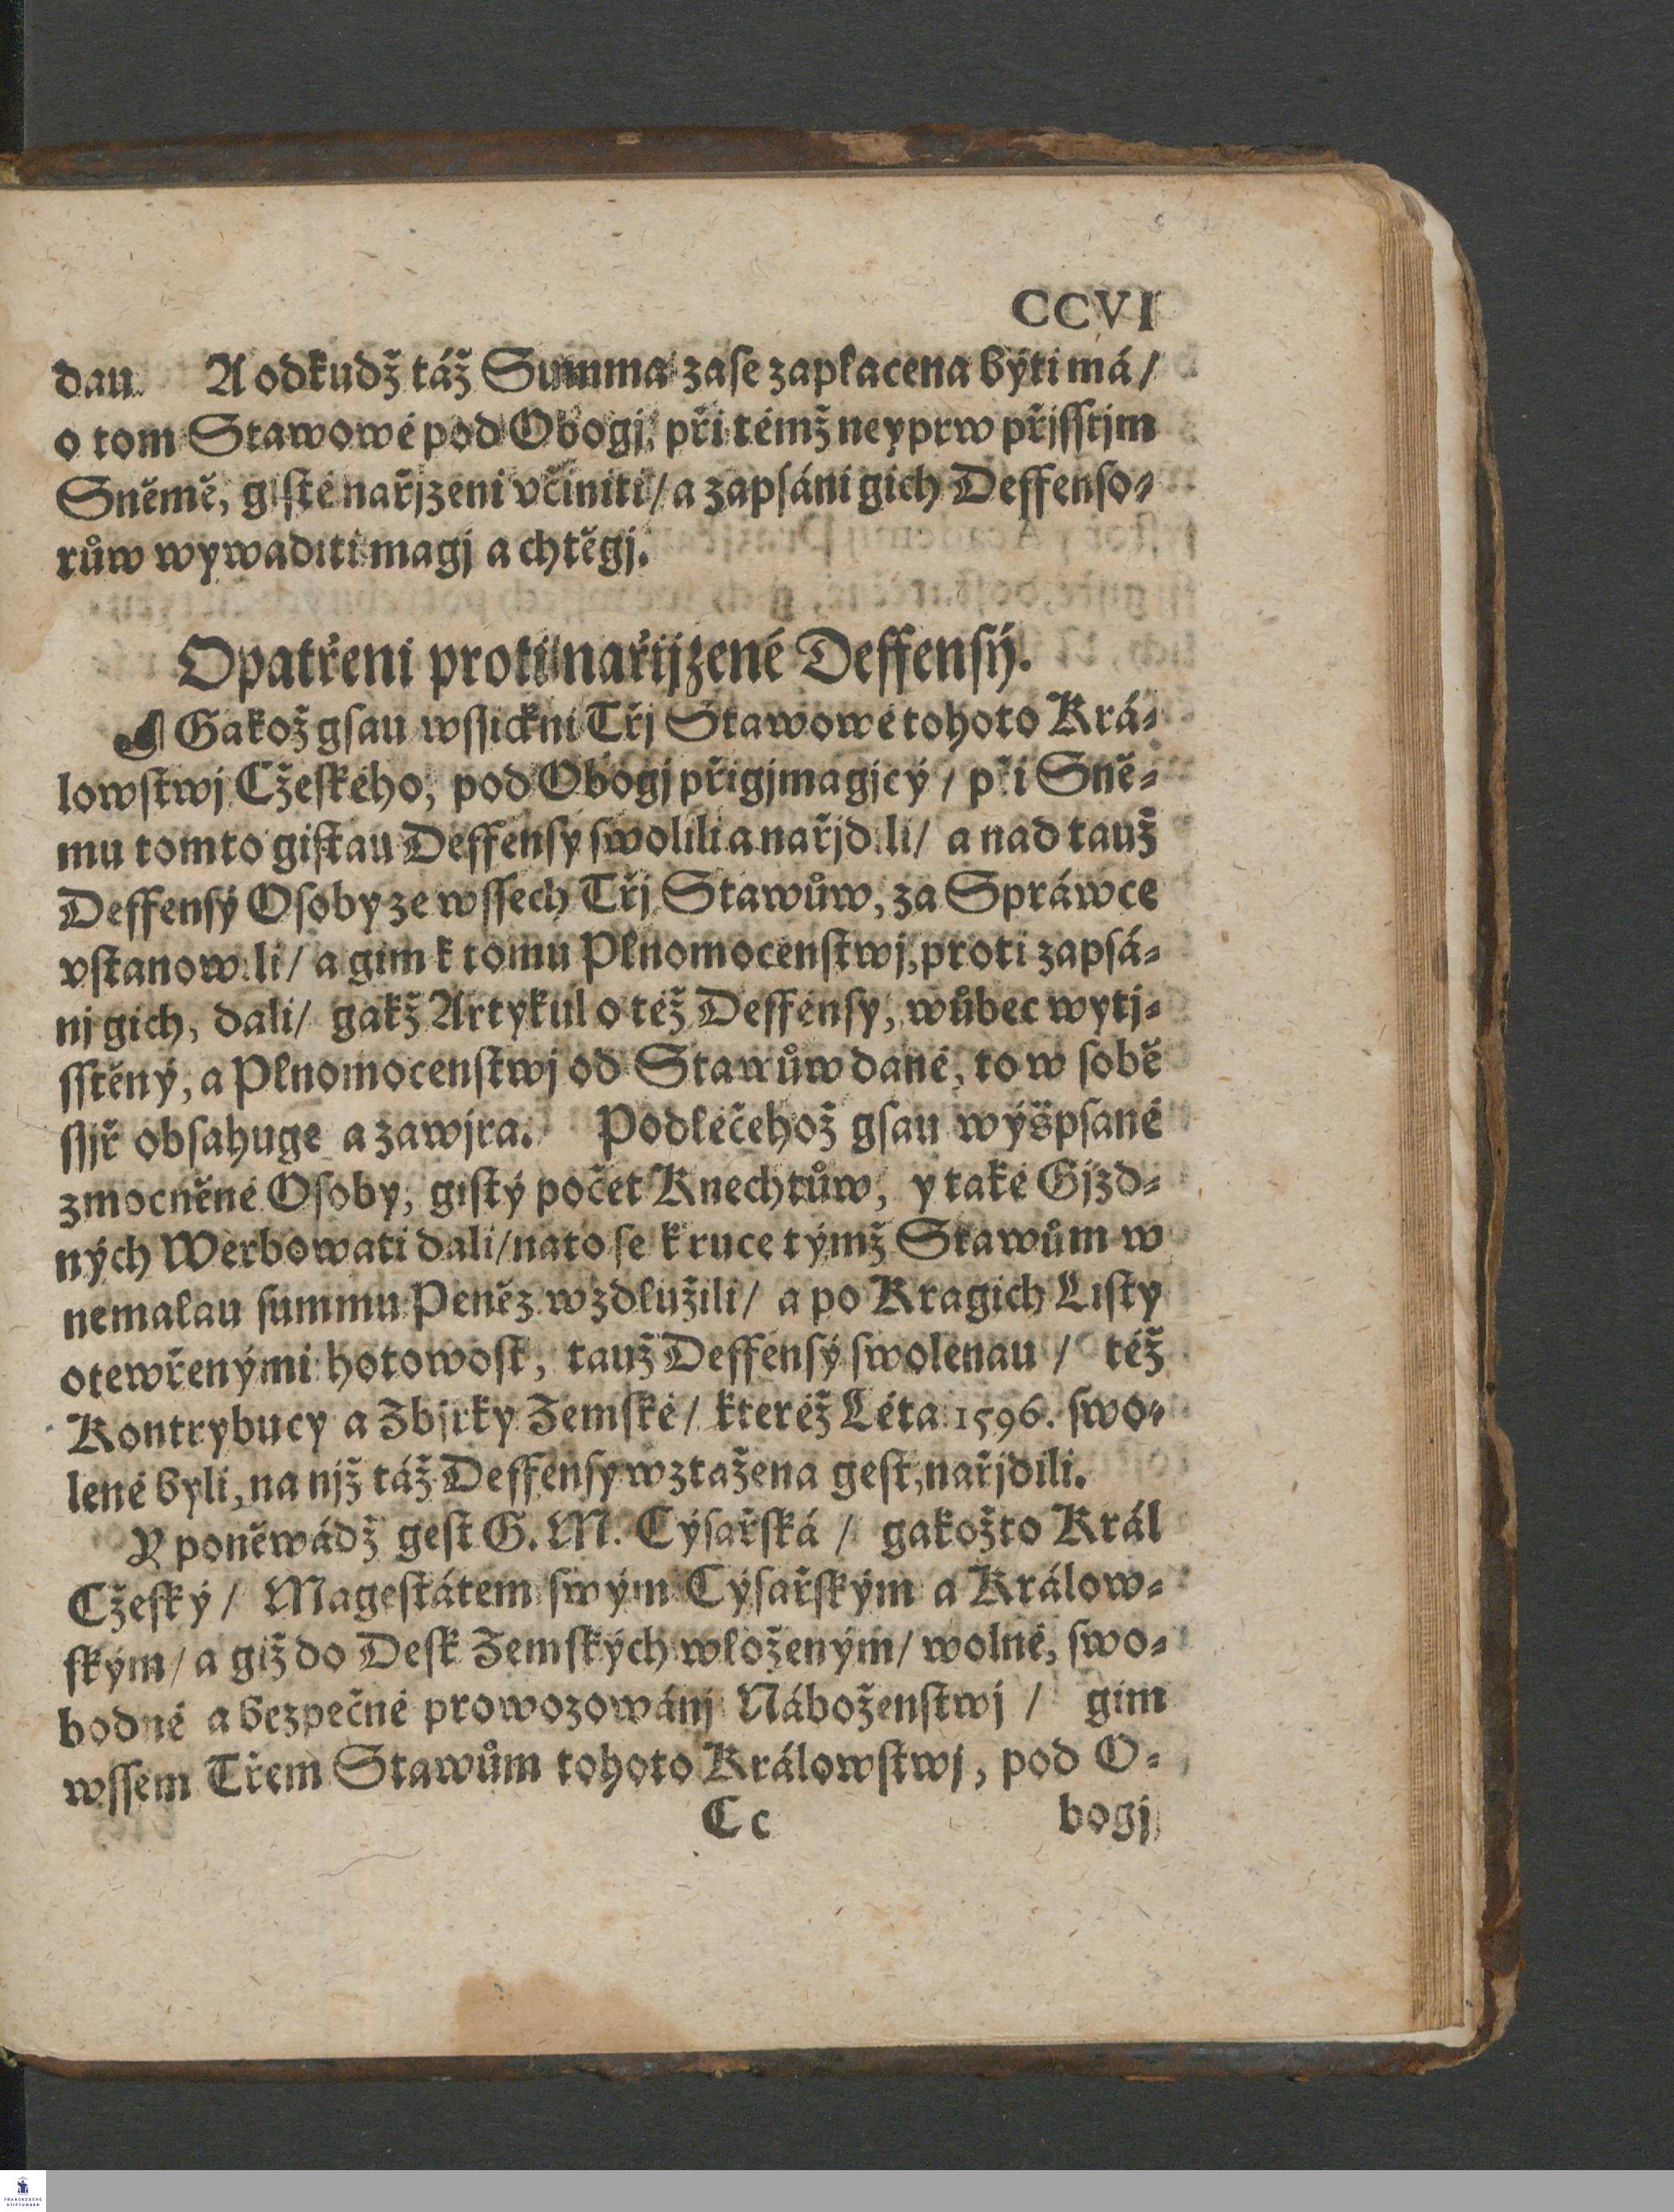 CCVI
dau. A odkudž táž Summa zase zaplacena býti má /
o tom Stawowé pod Obogj, při témž neyprw přjsstjm
Sněmě, gisté nařjzeni včiniti / a zapsáni gich Deffenso-
růw wywaditi magj a chtěgj.
Opatřeni proti nařijzené Deffensý.
Gakož gsau wssickni Třj Stawowé tohoto Krá-
lowstwj Cžeského, pod Obogj přigjmagjcý / při Sně-
mu tomto gistau Deffensy swolili a nařjdili / a nad tauž
Deffensý Osoby ze wssech Třj Stawůw, za Spráwce
vstanowili / a gim k tomu Plnomocenstwj, proti zapsá-
nj gich, dali / gakž Artykul o též Deffensy, wůbec wytj-
sstěný, a Plnomocenstwj od Stawůw dané, to w sobě
ssjř obsahuge a zawjra. Podlé čehož gsau wýšpsané
zmocněné Osoby, gistý počet Knechtůw, y také Gjzd-
ných Werbowati dali / na to se k ruce týmž Stawům w
nemalau summu Peněz wzdlužili / a po Kragich Listy
otewřenými hotowost, tauž Deffensý swolenau / též
Kontrybucy a Zbjrky Zemské / kteréž Léta 1596. swo-
lené byli, na njž táž Deffensy wztažena gest, nařjdili.
Y poněwádž gest G. M. Cýsařská / gakožto Král
Cžeský / Magestátem swým Cýsařským a Králow-
ským / a giž do Desk Zemských wloženým / wolné, swo-
bodné a bezpečné prowozowánj Náboženstwj / gim
wssem Třem Stawům tohoto Králowstwj, pod O-
Cc bogj
FRANCKESCHE
STIFTUNGEN